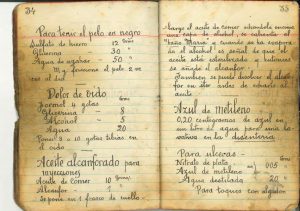 34
Para tenir el pelo en negro
Sulfato de hierro 12
Glicerina 30 "
Agua de azahar 50 "
el pelo 2 ve
ces al dia
Dolor de oido
Formol 4 gotas
Glicerina 8
Alcohol 5
Agua 20
Poner 3 o 4 gotas tibias en
el oido
Aceite alcanforado para
inyecciones
Aceite de comer 10
Alcanfor 1 "
Se pone en 1 frasco de cuello
35
largo el aceite de comer
una capa de alcohol, se calienta al
baño Maria y cuando se ha evapora
do el alcohol es señal de que el
aceite está esterilizado y entonces
se añade el alcanfor.
Tambien se puede disolver el alcan
for en éter antes de echarlo al
aceite
Azul de metileno
0,20 centigramos de azul en
un litro de agua para una la
vativa en la disenteria
Para ulceras
Nitrato de plata
Azul de metileno 005
Agua destilada 20 "
Para toques con algodon